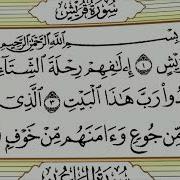 سُورَةُ قُرَيْشٍ
بِسْمِ ٱللَّهِ ٱلرَّحْمَـٰنِ ٱلرَّحِيمِ
يْشٍ ١ إِۦلَـٰفِهِمْ رِحْلَةَ ٱلشِّتَآ
دُوا۟ رَبَّ هَـٰذَا ٱلْبَيْتِ ٣ ٱلَّذِىٓ
مِّن جُوعٍ وَءَامَنَهُم مِّنْ خَوْفٍۭ